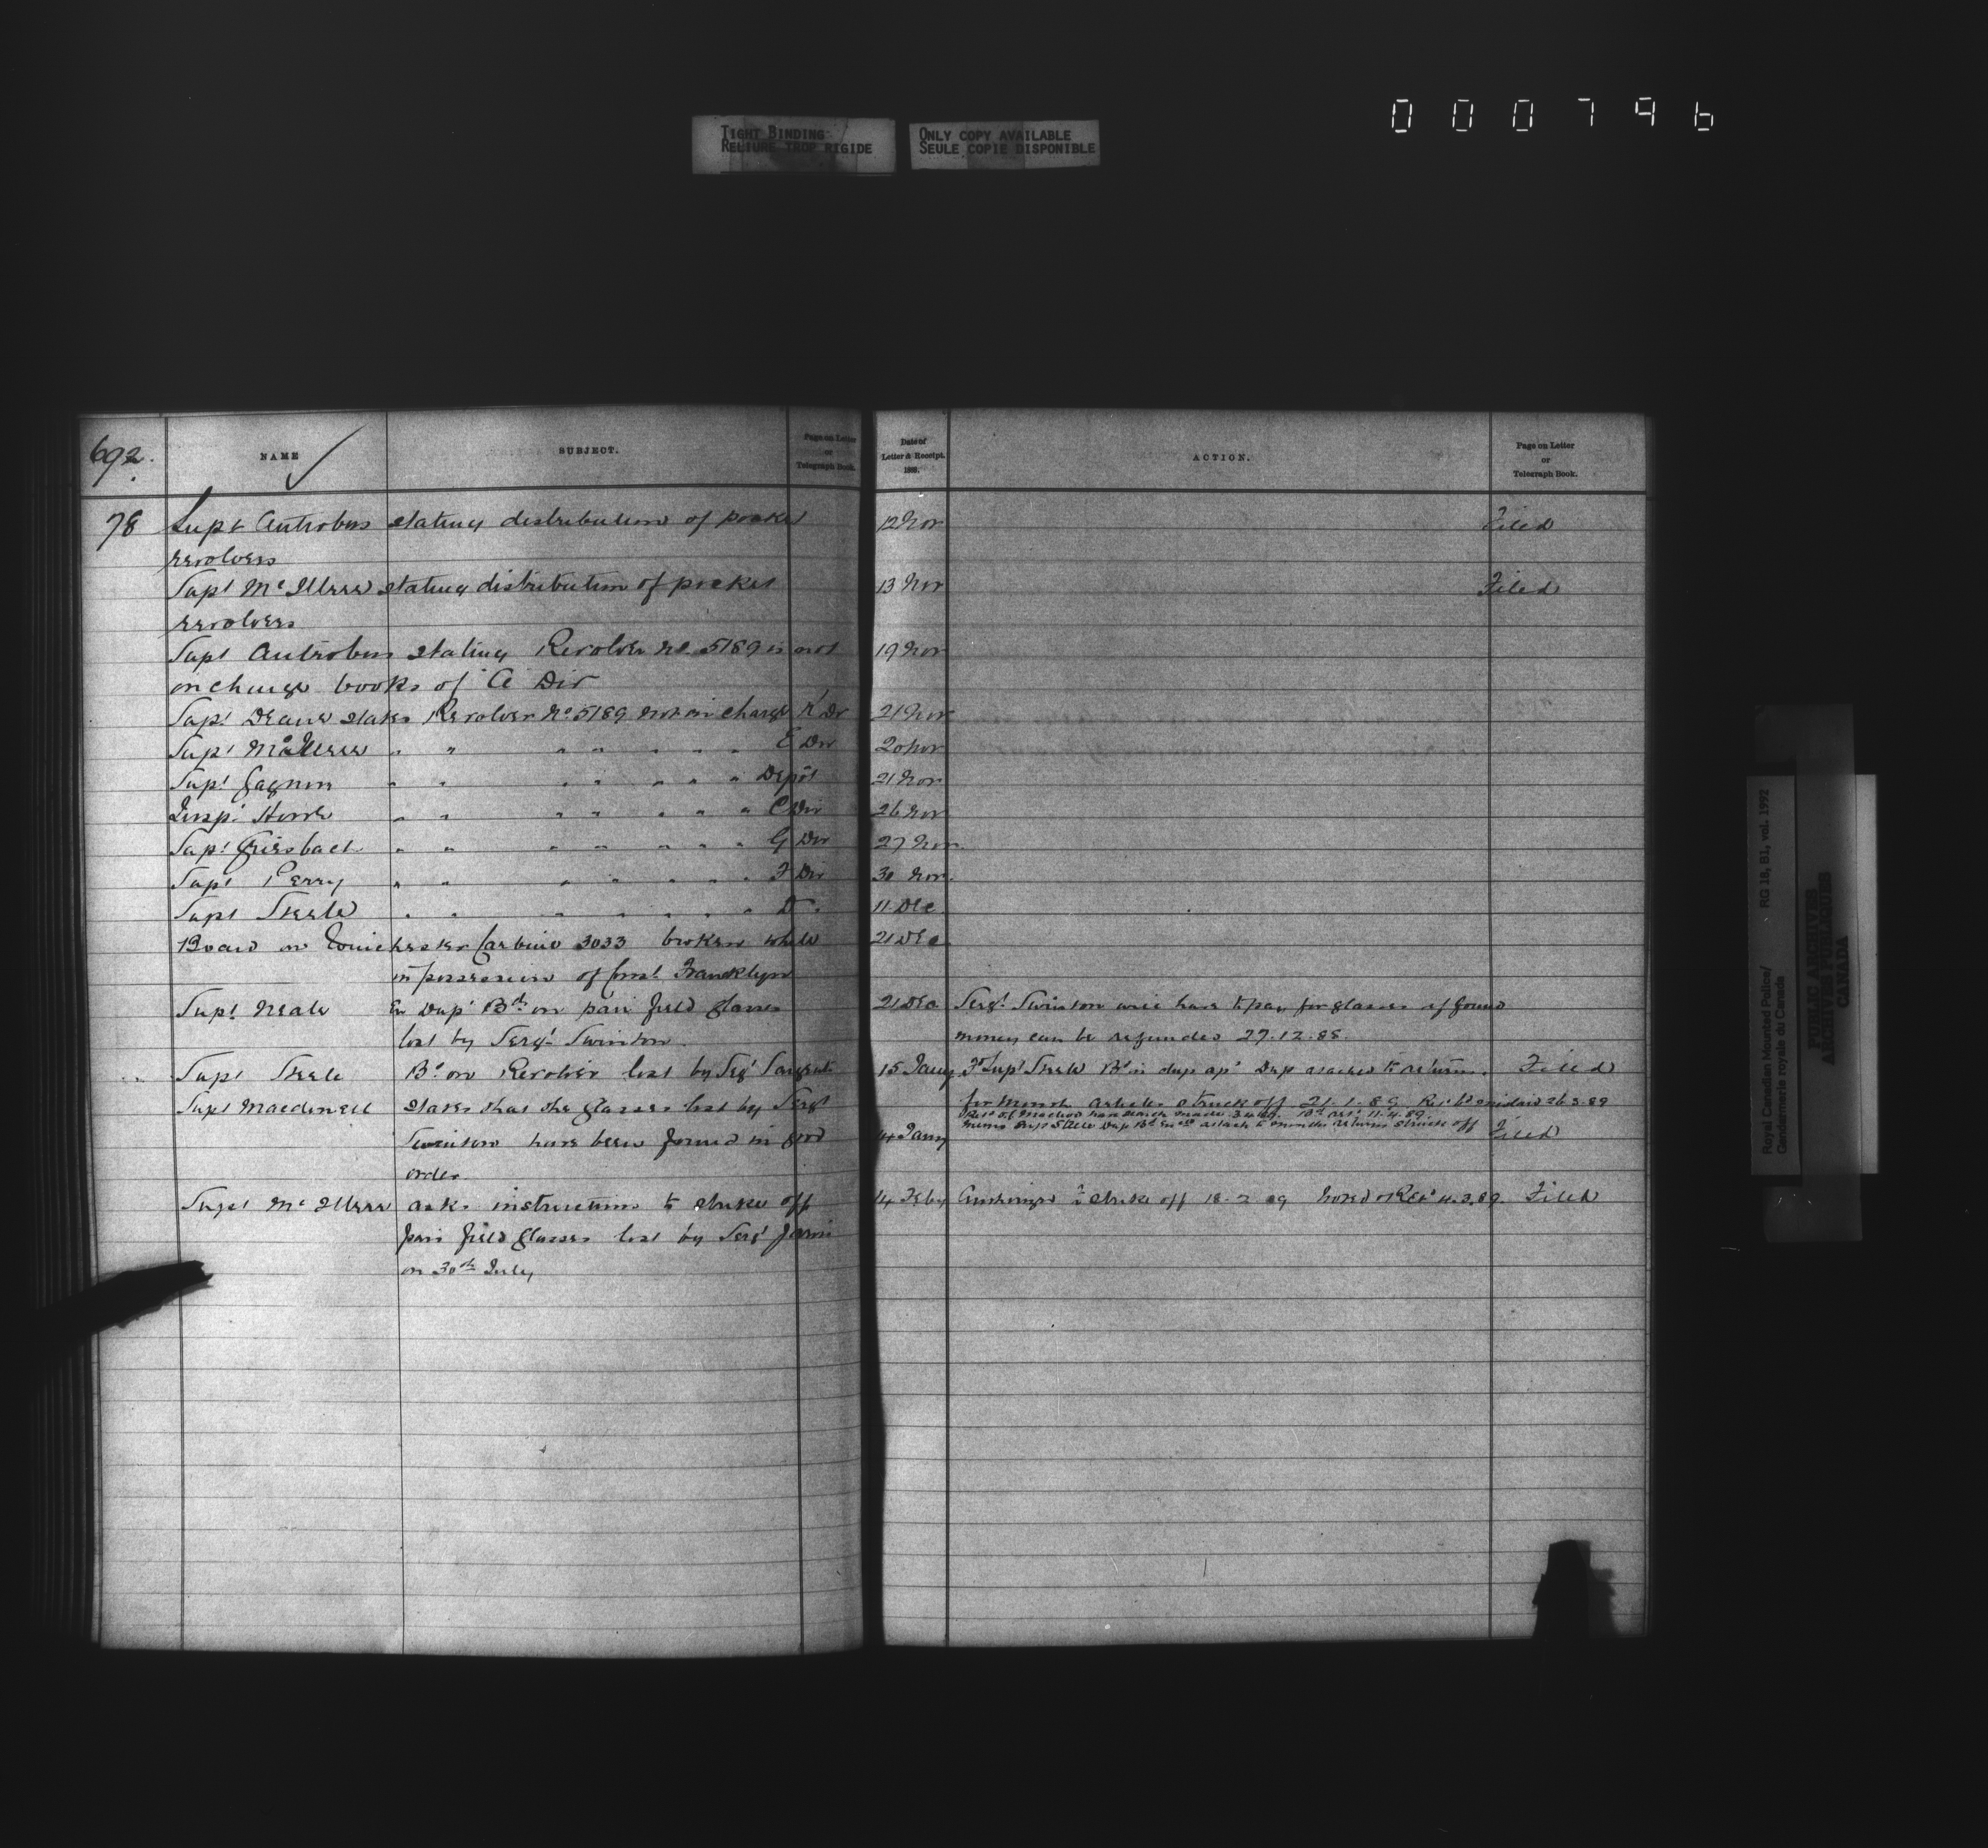 0 0 0 7 9 6
TIGHT BINDING
RELIURE TROP RIGIDE
ONLY COPY AVAILABLE
SEULE COPIE DISPONIBLE
692.
NAME
SUBJECT.
Page on Letter
or
Telegraph Book.
Date of
Letter & Receipt.
1888.
ACTION.
Page on Letter
or
Telegraph Book.
78 Supt Antrobus stating distribution of pocket 12 Nov Filed
revolvers
Supt McIllree stating distribution of pocket 13 Nov Filed
revolvers
Supt Antrobus stating Revolver no 5189 is not 19 Nov
on charge books of A Div
Supt Deane states Revolver No 5189 not on charge K Div 21 Nov
Supt McIllree " " " " " " " E Div 20 Nov
Supt Gagnon " " " " " " " Depôt 21 Nov
Insp Howe " " " " " " " C Div 26 Nov
Supt Griesbach " " " " " " " G Div 27 Nov
Supt Perry " " " " " " " F Div 30 Nov.
Supt Steele " " " " " " " D " 11 Dec
Board on Winchester Carbine 3033 broken while 21 Dec
in possession of Const Francklyn
Supt Neale En Dup Bd on pair field glasses 21 Dec Sergt Swinton will have to pay for glasses if found
lost by Sergt Swinton. money can be refunded 27.12.88.
Supt Steele Bd on Revolver lost by Sergt 15 Jany Supt Steele Bd in dup Dup to return. Filed
for month articles struck off 21.1.89 26.3.89
Supt Macdonell states that the glasses lost by Sergt
11.4.89.
Memo Supt Steele Dup Bd attach to months returns struck off
Swinton have been found in good 14 Jany Filed
order
Supt McIllree asks instructions to strike off 14 Feby to strike off 18-2-89 Filed
pair field glasses lost by Sergt Jarvis
on 30th July
Royal Canadian Mounted Police/ RG 18, B1, vol. 1992
Gendarmerie royale du Canada
PUBLIC ARCHIVES
ARCHIVES PUBLIQUES
CANADA